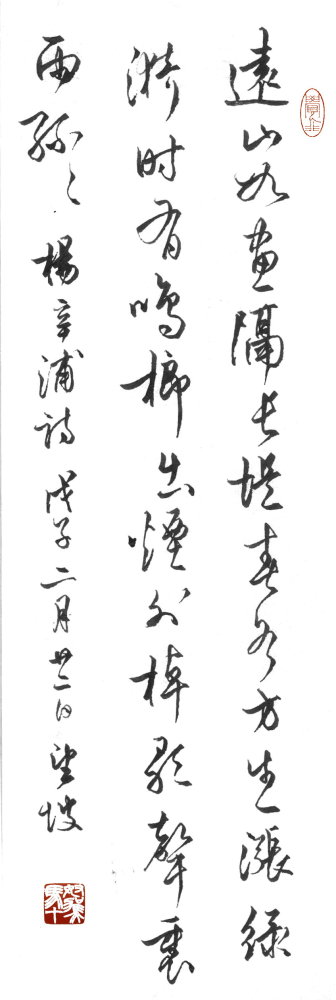 遠山如画隔長堤春水方生漲綠
漪时有鳴榔出煙外棹歌聲裏
雨絲々楊辛浦詩戊子二月廿二日望坡